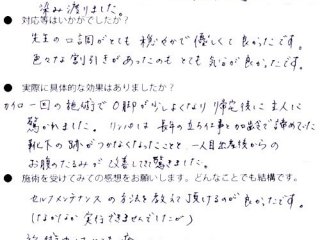 染み渡りました。
● 対応等はいかがでしたか？
先生の口調がとても穏やかで優しくて良かったです。
色々な割引きがあったのもとても気分が良かったです。
● 実際に具体的な効果はありましたか？
カイロ一回の施術でO脚が少しよくなり帰宅後に主人に
驚かれました。リンパは長年の立ち仕事と加齢で諦めていた
靴下の跡がつかなくなったことと、一人目出産後からの
お腹のたるみが改善してきて驚きました。
● 施術を受けてみての感想をお願いします。どんなことでも結構です。
セルフメンテナンスの方法を教えて頂けるのが良かったです。
(なかなか実行できませんでしたが)